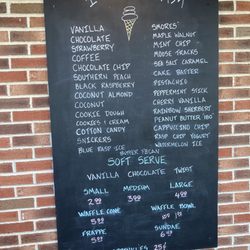 VANILLA
CHOCOLATE
STRAWBERRY
COFFEE
CHOCOLATE CHIP
SOUTHERN PEACH
BLACK RASPBERRY
COCONUT ALMOND
COCONUT
COOKIE DOUGH
COOKIES & CREAM
COTTON CANDY
SNICKERS
BLUE RASP ICE
SMORES'
MAPLE WALNUT
MINT CHIP
MOOSE TRACKS
SEA SALT CARAMEL
CAKE BATTER
PISTACHIO
PEPPERMINT STICK
CHERRY VANILLA
RAINBOW SHERBERT
PEANUT BUTTER
CAPPUCCINO CHIP
RASP CHIP YOGURT
WATERMELON ICE
BUTTER PECAN
SOFT SERVE
VANILLA CHOCOLATE TWIST
SMALL MEDIUM LARGE
WAFFLE CONE WAFFLE BOWL
FRAPPE SUNDAE
25¢